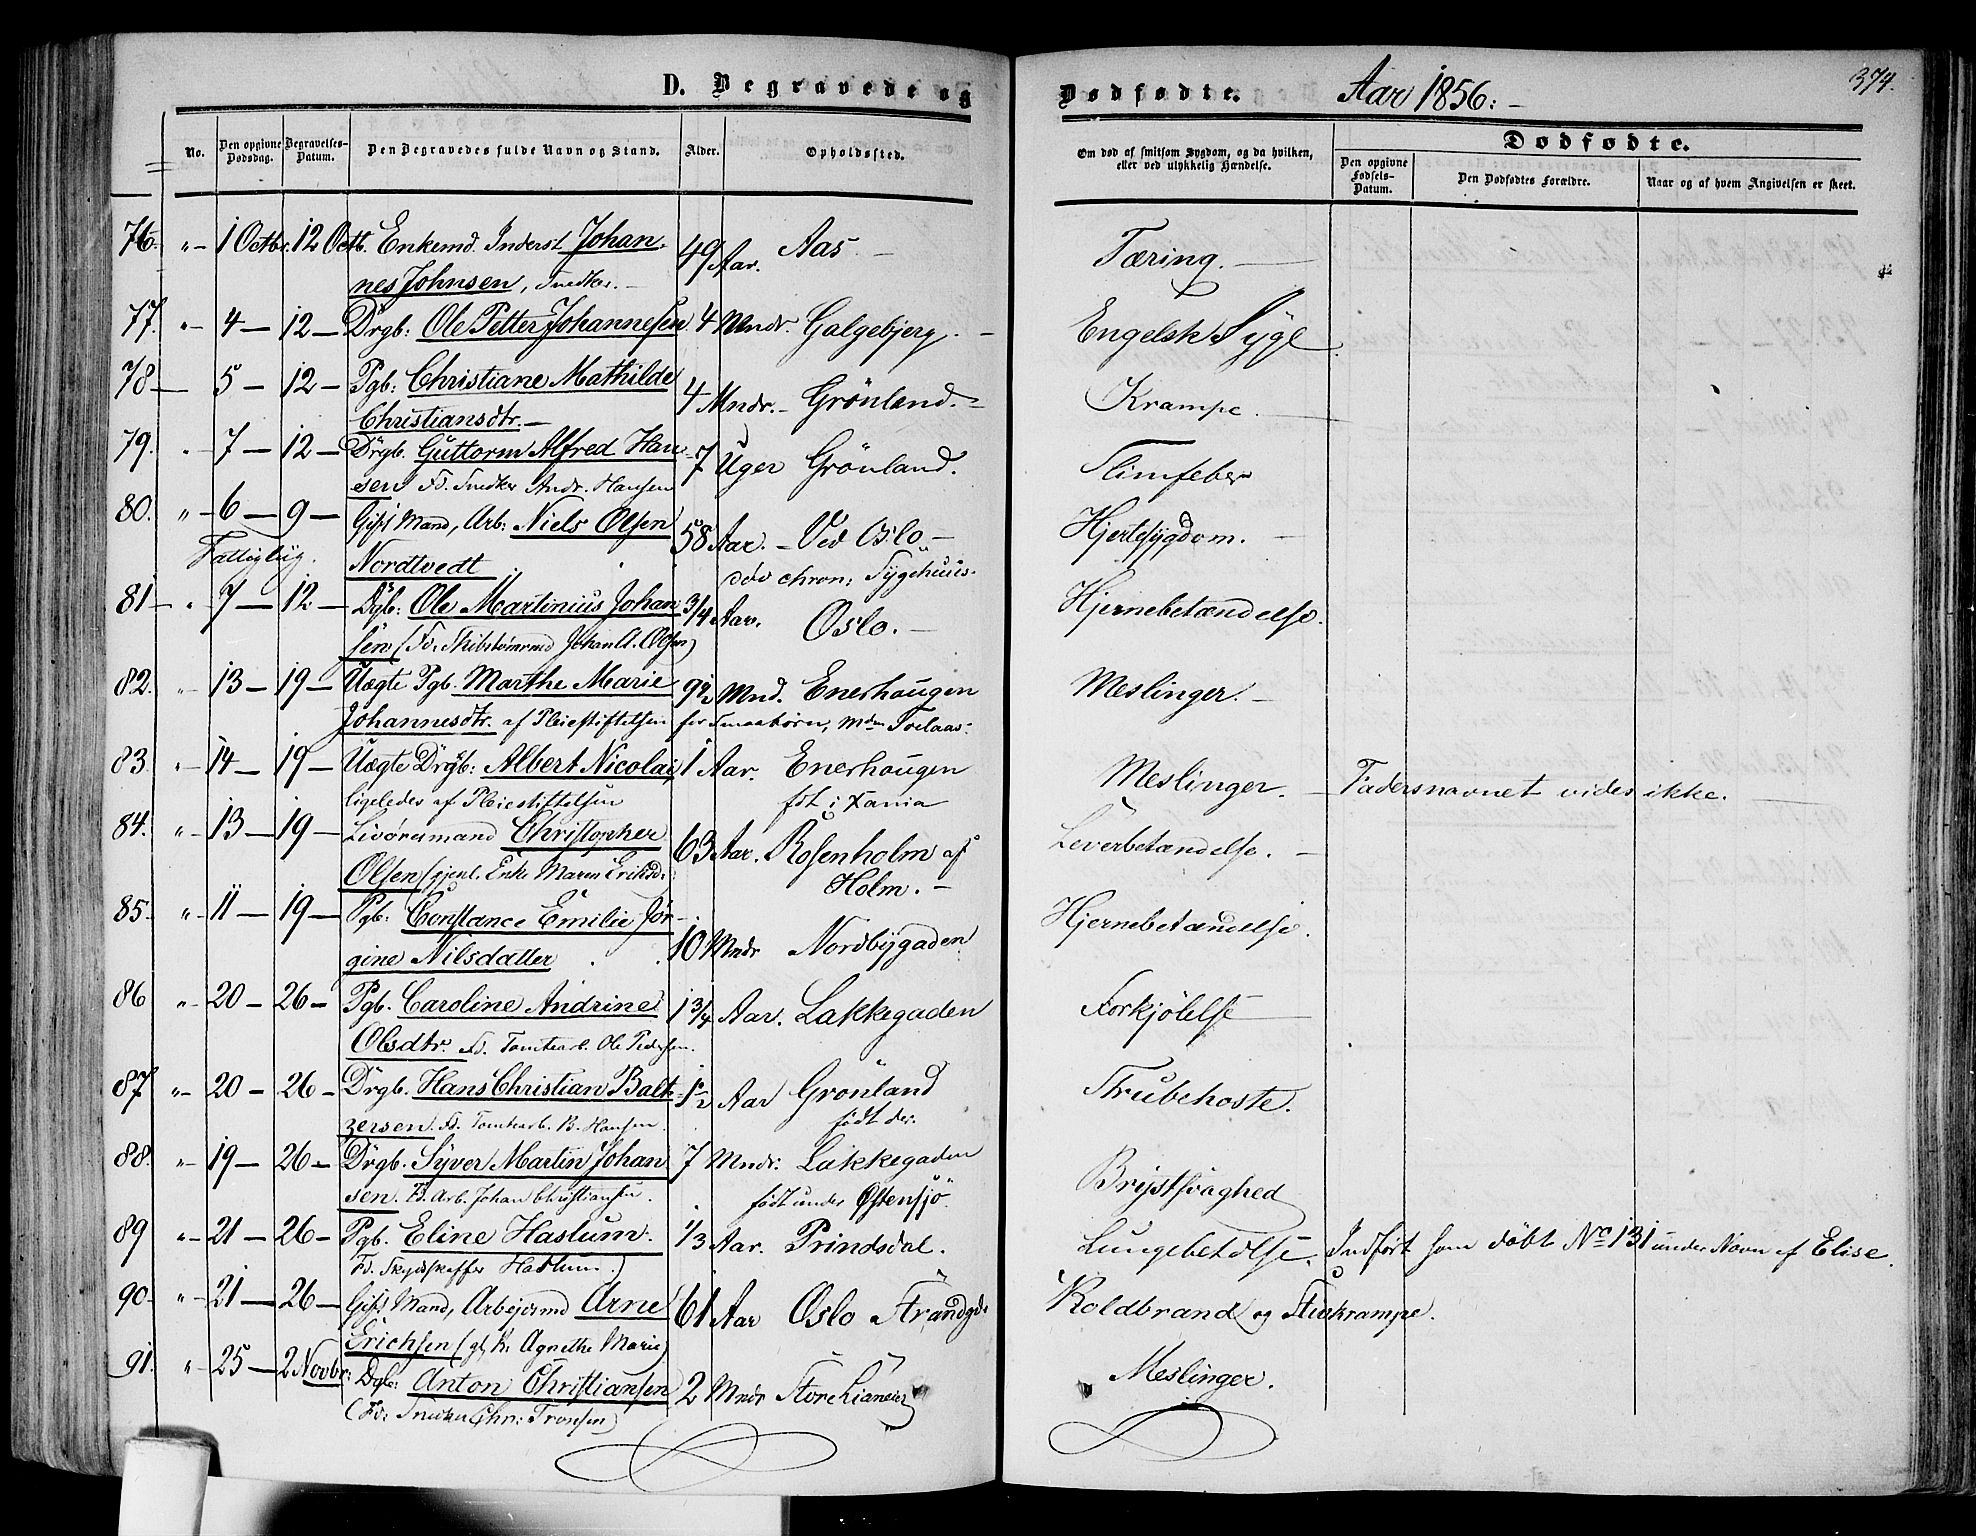 D. Begravede og Dødfødte. Aar 1856: 374.
No. Den opgivne Dødsdag. Begravelses-Datum. Den Begravedes fulde Navn og Stand. Alder. Opholdssted. Om død af smitsom Sygdom, og da hvilken, eller ved ulykkelig Hændelse. Dødfødte.
Den opgivne Fødsels-Datum. Den Dødfødtes Forældre. Naar og af hvem Angivelsen er skeet.
76. " 1 Octbr. 12 Octb. Enkemd. Inderst Johan- 49 Aar. Aas Tæring.
nes Johnsen, Snedker.
77. " 4 — 12 — Drgb: Ole Petter Johannesen 4 Mndr. Galgebjerg. Engelsk Syge
78 — 5 — 12 — Pgb: Christiane Mathilde 4 Mndr. Grönland. Krampe.
Christiansdtr.
79. " 7 — 12 — Drgb. Guttorm Alfred Han- 7 Uger Grönland. Slimfeber
sen Fd. Snedker Andr. Hansen
80. " 6 — 9 — Gift Mand, Arb: Niels Olsen 58 Aar. Ved Oslo Hjertesygdom.
Fattiglig. Nordtvedt chron: Sygehuus.
81 — " 7 — 12 — Dgb: Ole Martinius Johan- 3/4 Aar. Oslo. Hjernebetændelse.
sen (Fd. Skibstømrmd Johan A. Olsen)
82. " 13 — 19 — Uægte Pgb. Marthe Marie 9 1/2 Mnd. Enerhaugen Meslinger.
Johannesdtr. af Pleiestiftelsen for Smaabørn, Mdm
83. " 14 — 19 — Uægte Drgb: Albert Nicolai 1 Aar. Enerhaugen Meslinger. Fadersnavnet vides ikke.
ligeledes af Pleiestiftelsen fdt i Xania
84. " 13 — 19 — Livöresmand Christopher 63 Aar. Rosenholm af Leverbetændelse.
Olsen (gjenl. Enke Maren Eriksd: Holm.
85. " 11 — 19 — Pgb: Constance Emilie Jör- 10 Mndr Nordbygaden Hjernebetændelse.
gine Nilsdatter
86 " 20 — 26 — Pgb. Caroline Andrine 1 3/4 Aar. Lakkegaden Forkjölelse
Olsdtr. Fd. Tomtearb. Ole Pedersen.
87 " 20 — 26 — Drgb. Hans Christian Balt- 1/2 Aar Grönland Strubehoste.
zersen. Fd. Tomtearb. B. Hansen. født der.
88. " 19 — 26 — Drgb. Syver Martin Johan- 7 Mndr: Lakkegaden Brystsvaghed
sen. Fd. Arb. Johan Christiansen. født under Östensjö
89 " 21 — 26 — Pgb. Eline Haslum. 1/3 Aar. Prindsdal. Lungebetdlse. Indfört som döbt No 131 under Navn af Elise.
Fd. Skydsskaffer Haslum.)
90. " 21 — 26 — Gift Mand, Arbejdsmd Arne 61 Aar Oslo Strandgd. Koldbrand og Stivkrampe.
Erichsen (gl. K. Agnethe Marie)
91. " 25 — 2 Novbr: Dgb: Anton Christiansen 2 Mndr Store Meslinger.
(Fd: Snedker Chr: Tronsen)